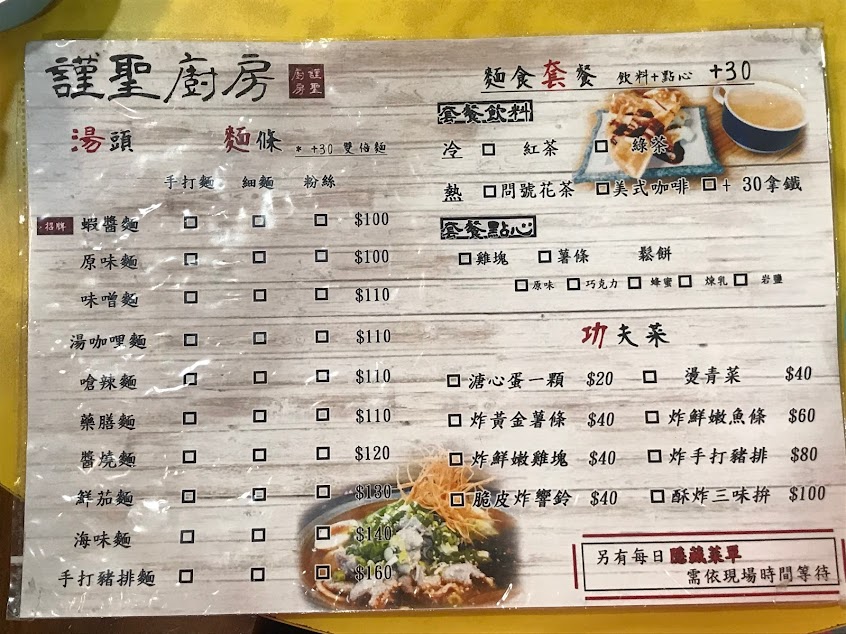 謹聖廚房 謹聖廚房
湯頭 麵條 * +30 雙倍麵
手打麵 細麵 粉絲
招牌 蝦醬麵 $100
原味麵 $100
味噌麵 $110
湯咖哩麵 $110
嗆辣麵 $110
藥膳麵 $110
醬燒麵 $120
鮮茄麵 $130
海味麵 $140
手打豬排麵 $160
麵食套餐 飲料+點心 +30
套餐飲料
冷 紅茶 綠茶
熱 問號花茶 美式咖啡 + 30拿鐵
套餐點心
雞塊 薯條 鬆餅
原味 巧克力 蜂蜜 煉乳 岩鹽
功夫菜
溏心蛋一顆 $20 燙青菜 $40
炸黃金薯條 $40 炸鮮嫩魚條 $60
炸鮮嫩雞塊 $40 炸手打豬排 $80
脆皮炸響鈴 $40 酥炸三味拚 $100
另有每日隱藏菜單
需依現場時間等待